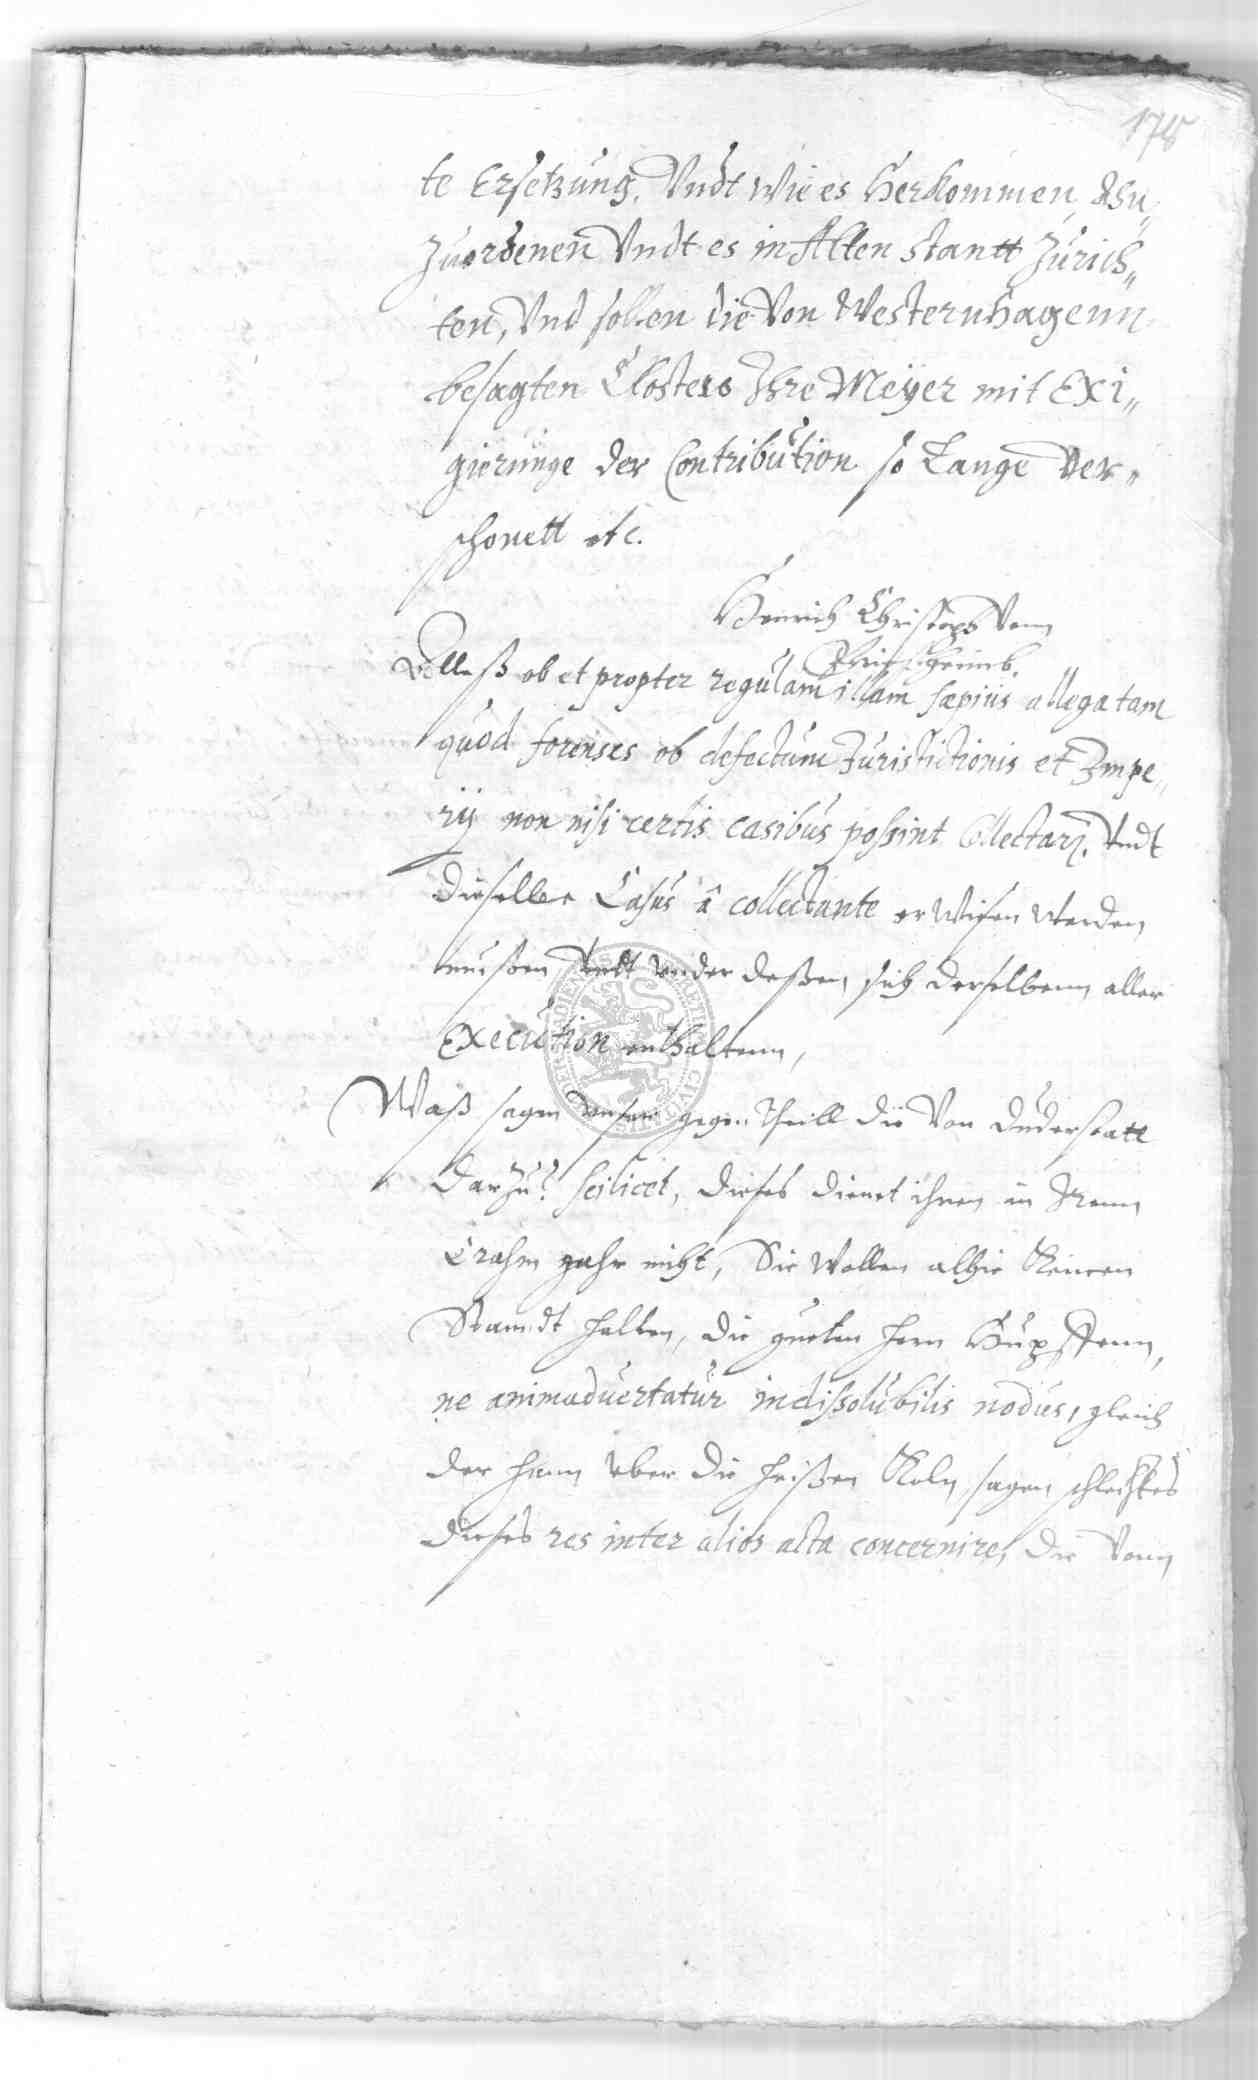 178
te Ersetzung, Vndt wie es Herkommen,
Zuordenen Vndt es in Alten Stantt Zurich„
ten, Vnd sollen die Von Westernhagenn
besagten Closters Ihre Meÿer mit Exi„
gierunge der Contribution so Lange Ver„
schonett etc.
Henrich Christoph Vonn
Alleß ob et propter regulam illam sæpius allegatam
quod forenses ob defectum Juristictionis et Impe„
rij non nisi certis casibus possint Collectari, Vndt
dieselbe Casus â collectante erwisen werden
mußen, Vndt vnder deßen, sich derselbenn aller
Execution enthaltenn,
Waß sagen vnser gegen Theill die Von Duderstatt
darzu? scilicet, dieses dienet ihnen in Irenn
Crahm gahr nicht, Sie wollen alhie Keinen
Standt halten, die gueten hern
ne animaduertatur indissolubilis nodus, gleich
der hann vber die heißen Koln, sagen schlechtes
dieses res inter alios acta concernire, die Vonn